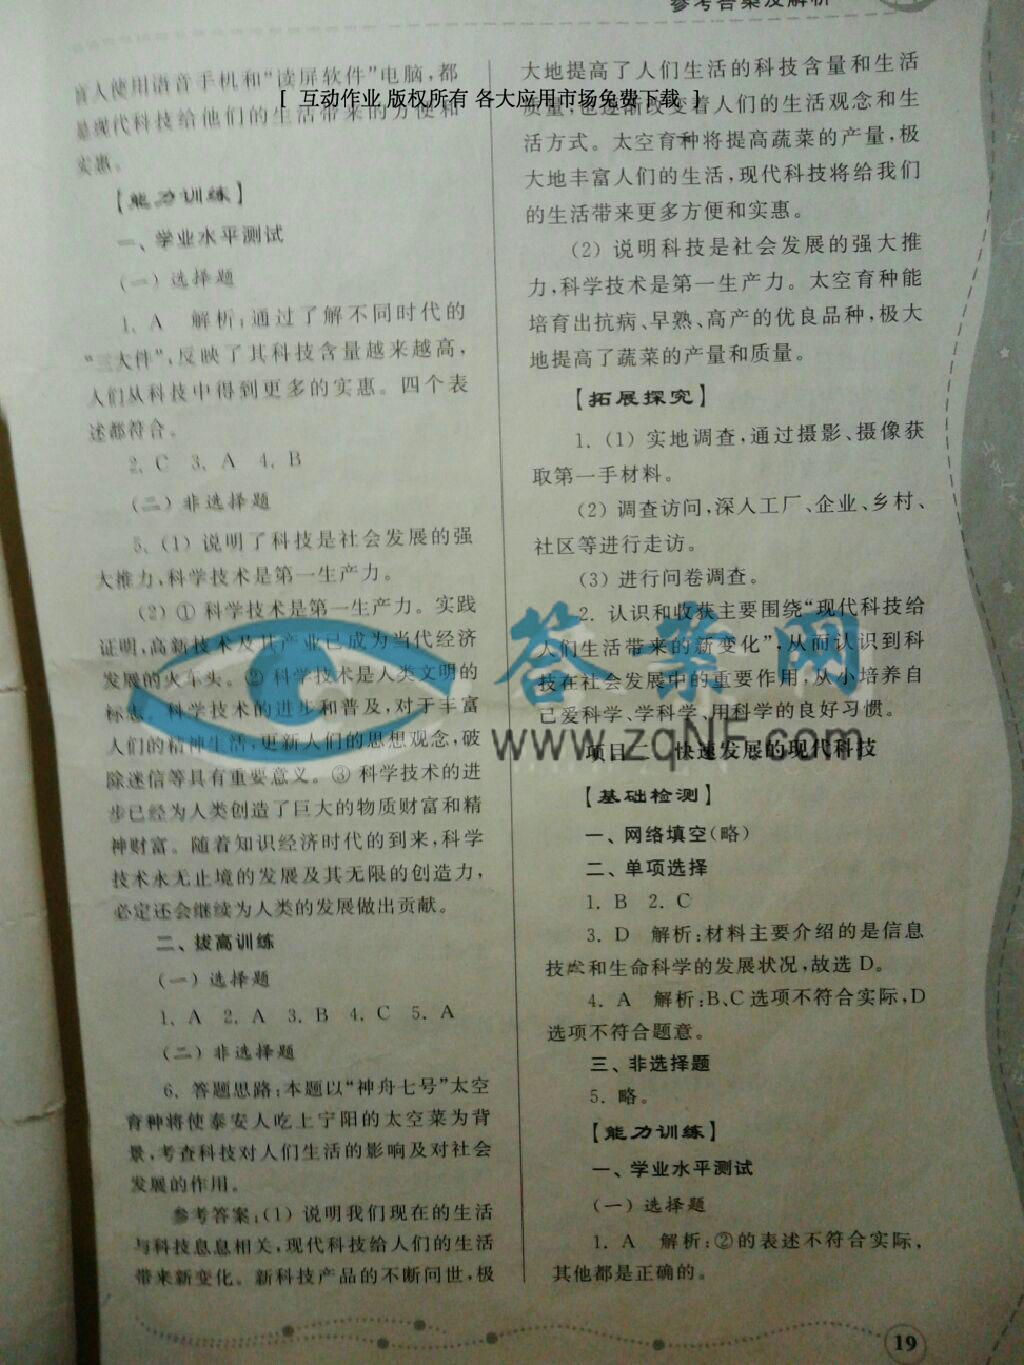 参考答案及解析
盲人使用语音手机和“读屏软件”电脑,都
是现代科技给他们的生活带来的方便和
实惠。
【能力训练】
一、学业水平测试
(一)选择题
1. A 解析:通过了解不同时代的
“三大件”,反映了其科技含量越来越高,
人们从科技中得到更多的实惠。四个表
述都符合。
2. C 3. A 4. B
(二)非选择题
5. (1) 说明了科技是社会发展的强
大推力,科学技术是第一生产力。
(2) ① 科学技术是第一生产力。实践
证明,高新技术及其产业已成为当代经济
发展的火车头。② 科学技术是人类文明的
标志。科学技术的进步和普及,对于丰富
人们的精神生活,更新人们的思想观念,破
除迷信等具有重要意义。③ 科学技术的进
步已经为人类创造了巨大的物质财富和精
神财富。随着知识经济时代的到来,科学
技术永无止境的发展及其无限的创造力,
必定还会继续为人类的发展做出贡献。
二、拔高训练
(一)选择题
1. A 2. A 3. B 4. C 5. A
(二)非选择题
6. 答题思路:本题以“神舟七号”太空
育种将使泰安人吃上宁阳的太空菜为背
景,考查科技对人们生活的影响及对社会
发展的作用。
参考答案:(1) 说明我们现在的生活
与科技息息相关,现代科技给人们的生活
带来新变化。新科技产品的不断问世,极
大地提高了人们生活的科技含量和生活
[ 互动作业 版权所有 各大应用市场免费下载 ]
质量,也逐渐改变着人们的生活观念和生
活方式。太空育种将提高蔬菜的产量,极
大地丰富人们的生活,现代科技将给我们
的生活带来更多方便和实惠。
(2) 说明科技是社会发展的强大推
力,科学技术是第一生产力。太空育种能
培育出抗病、早熟、高产的优良品种,极大
地提高了蔬菜的产量和质量。
【拓展探究】
1. (1) 实地调查,通过摄影、摄像获
取第一手材料。
(2) 调查访问,深入工厂、企业、乡村、
社区等进行走访。
(3) 进行问卷调查。
2. 认识和收获主要围绕“现代科技给
人们生活带来的新变化”,从而认识到科
技在社会发展中的重要作用,从小培养自
己爱科学、学科学、用科学的良好习惯。
答案网
www.zqNF.com
项目二 快速发展的现代科技
【基础检测】
一、网络填空(略)
二、单项选择
1. B 2. C
3. D 解析:材料主要介绍的是信息
技术和生命科学的发展状况,故选 D。
4. A 解析:B、C选项不符合实际,D
选项不符合题意。
三、非选择题
5. 略。
【能力训练】
一、学业水平测试
(一)选择题
1. A 解析:②的表述不符合实际,
其他都是正确的。
19